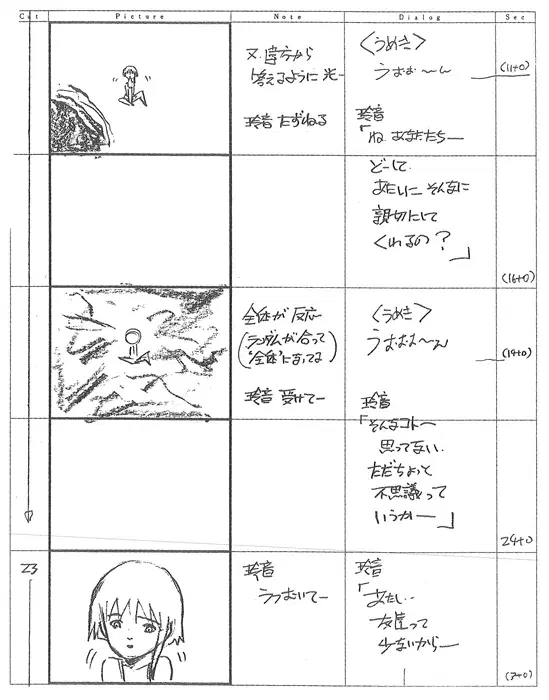 Cut Picture Note Dialog Sec
又、彼方から
答えるように 光ー
玲音 たずねる
〈うめき〉
うぉぉ〜ん
(11+0)
玲音
「ね、あなたたちー
どーして、
あたしに そんなに
親切にして
くれるの?」
(16+0)
全体が 反応
(ランダムが合って
"全体"になってる)
玲音 受けてー
〈うめき〉
うぉぉぉ〜ん
(19+0)
玲音
「そんなコトー
思ってない、
ただちょっと
不思議って
いうかー」
24+0
23
玲音
うつむいてー
玲音
「あたし‥
友達って
少ないからー
(7+0)